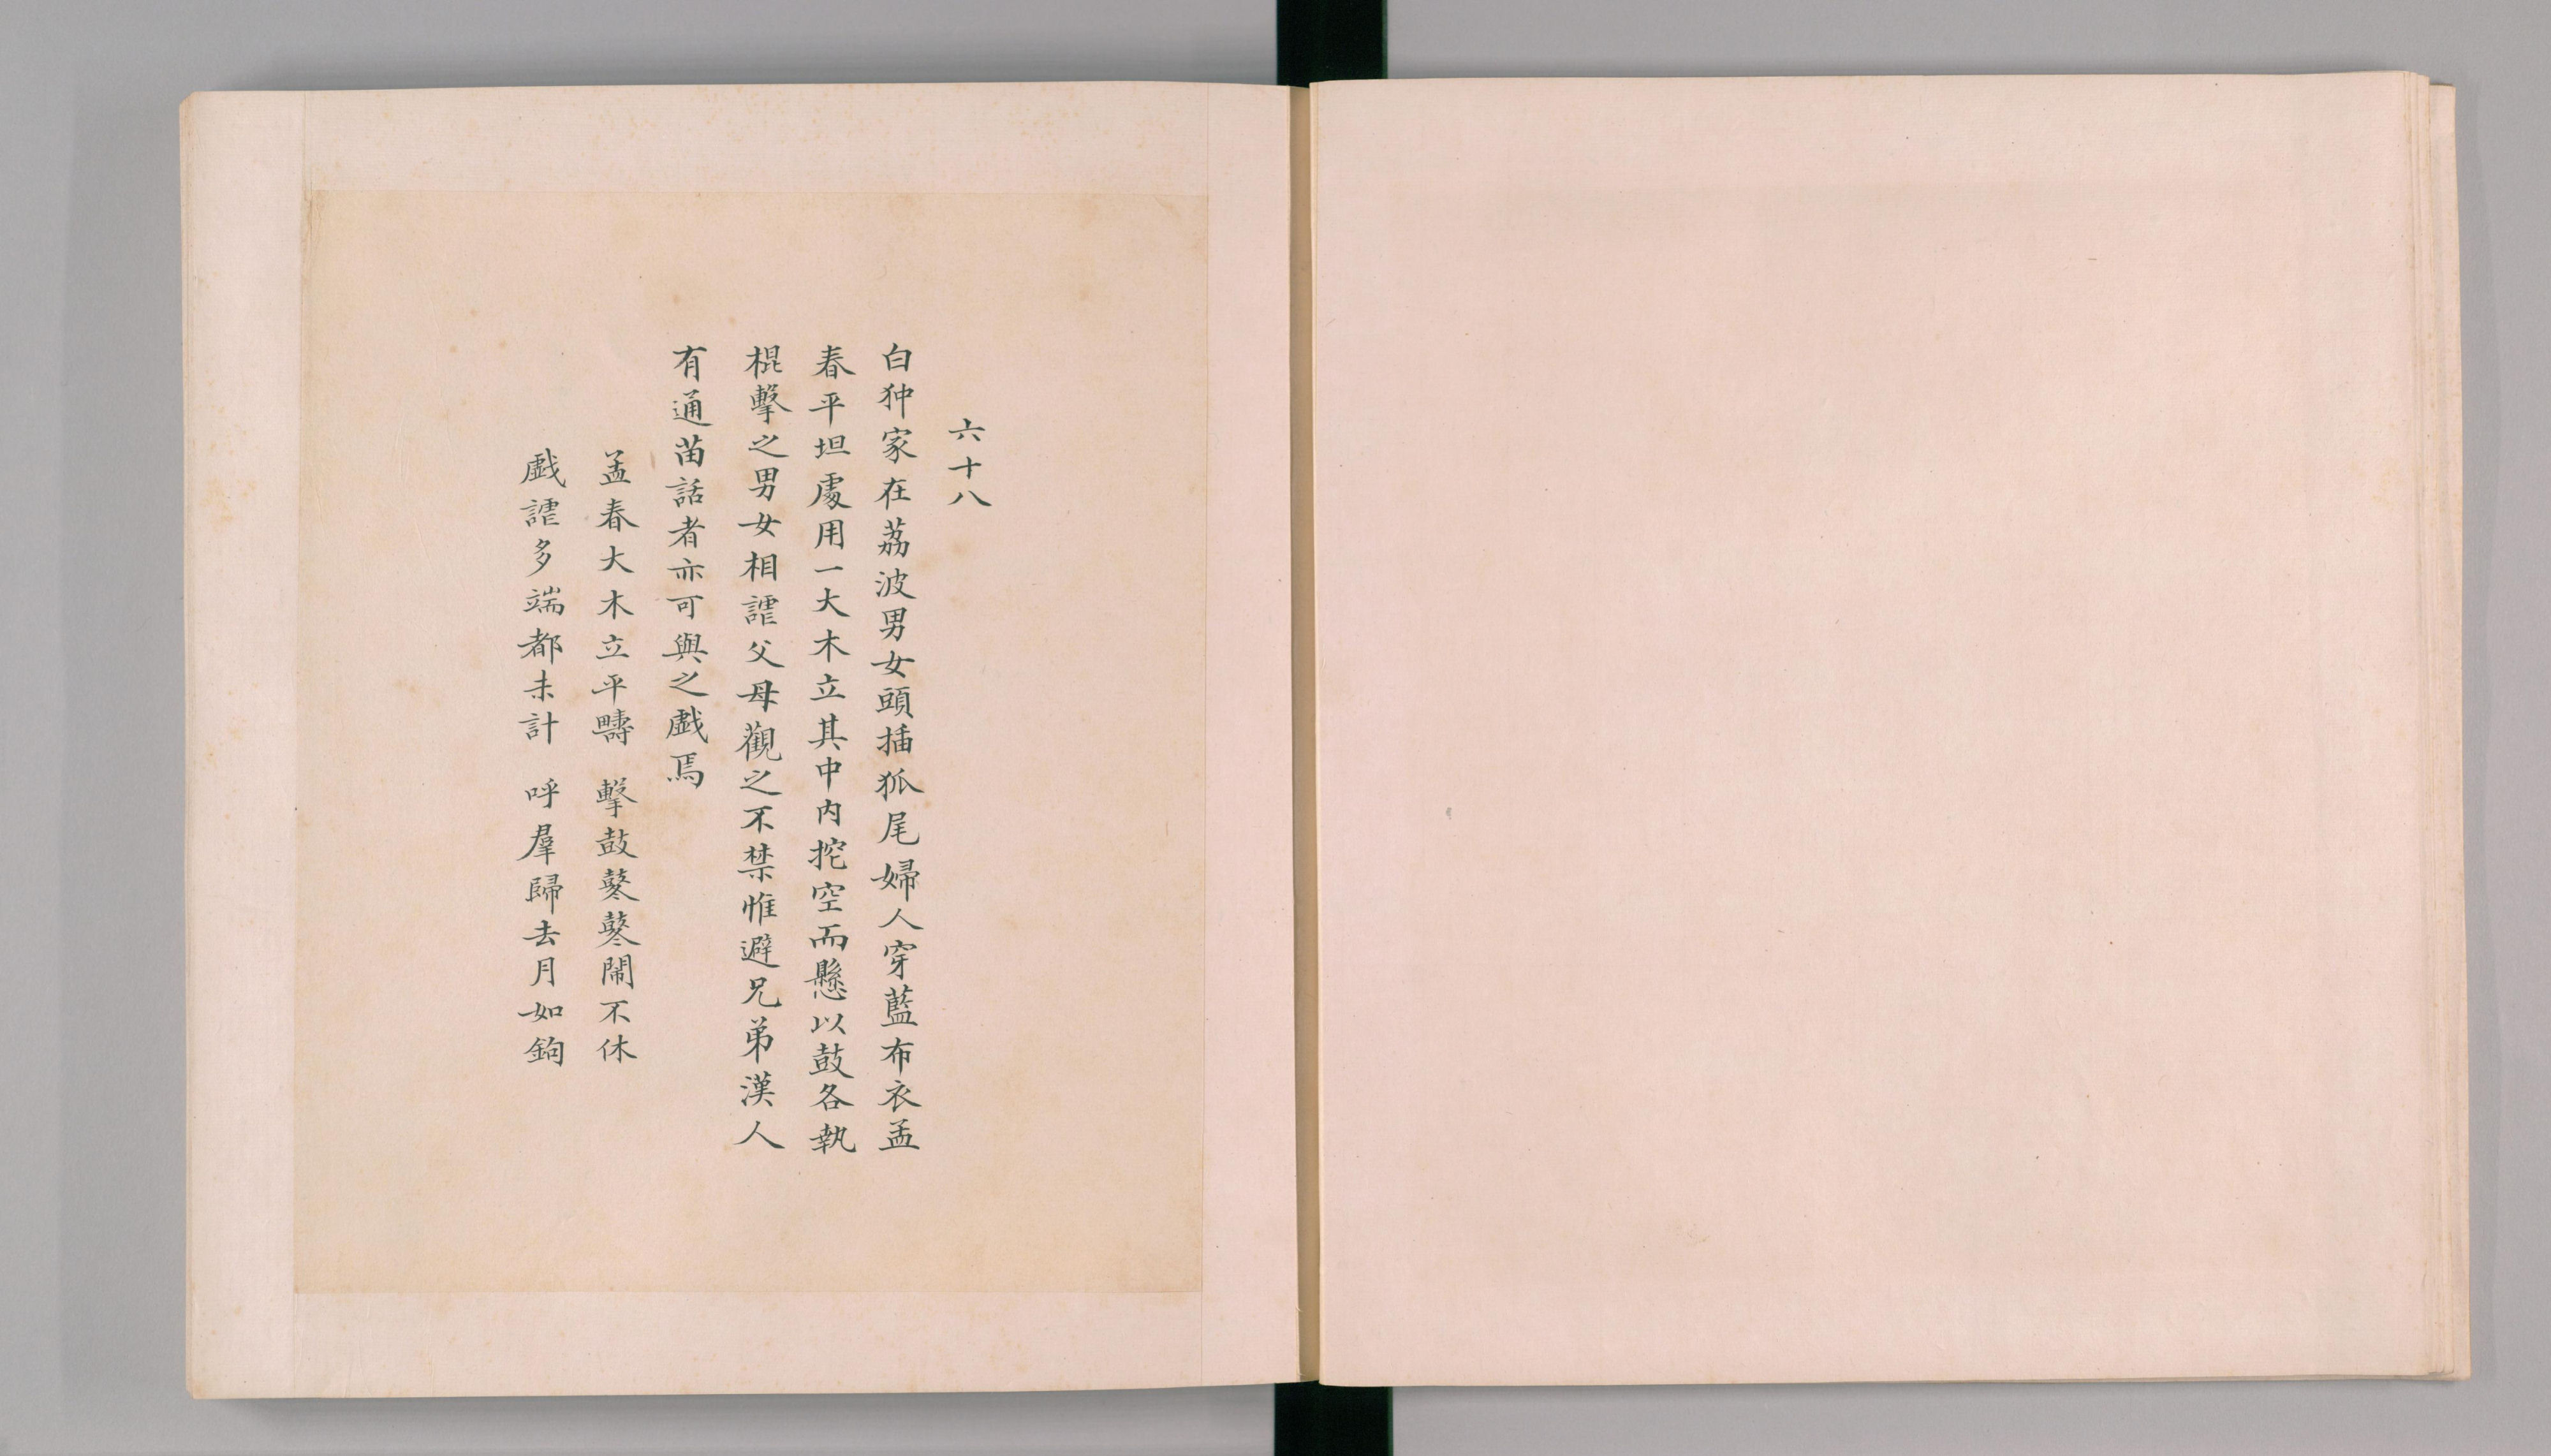 六十八
白狆家在荔波男女頭插狐尾婦人穿藍布衣孟
春平坦處用一大木立其中內挖空而懸以鼓各執
棍擊之男女相謔父母觀之不禁惟避兄弟漢人
有通苗話者亦可與之戲焉
孟春大木立平疇 擊鼓鼕鼕鬧不休
戲謔多端都未計 呼羣歸去月如鉤